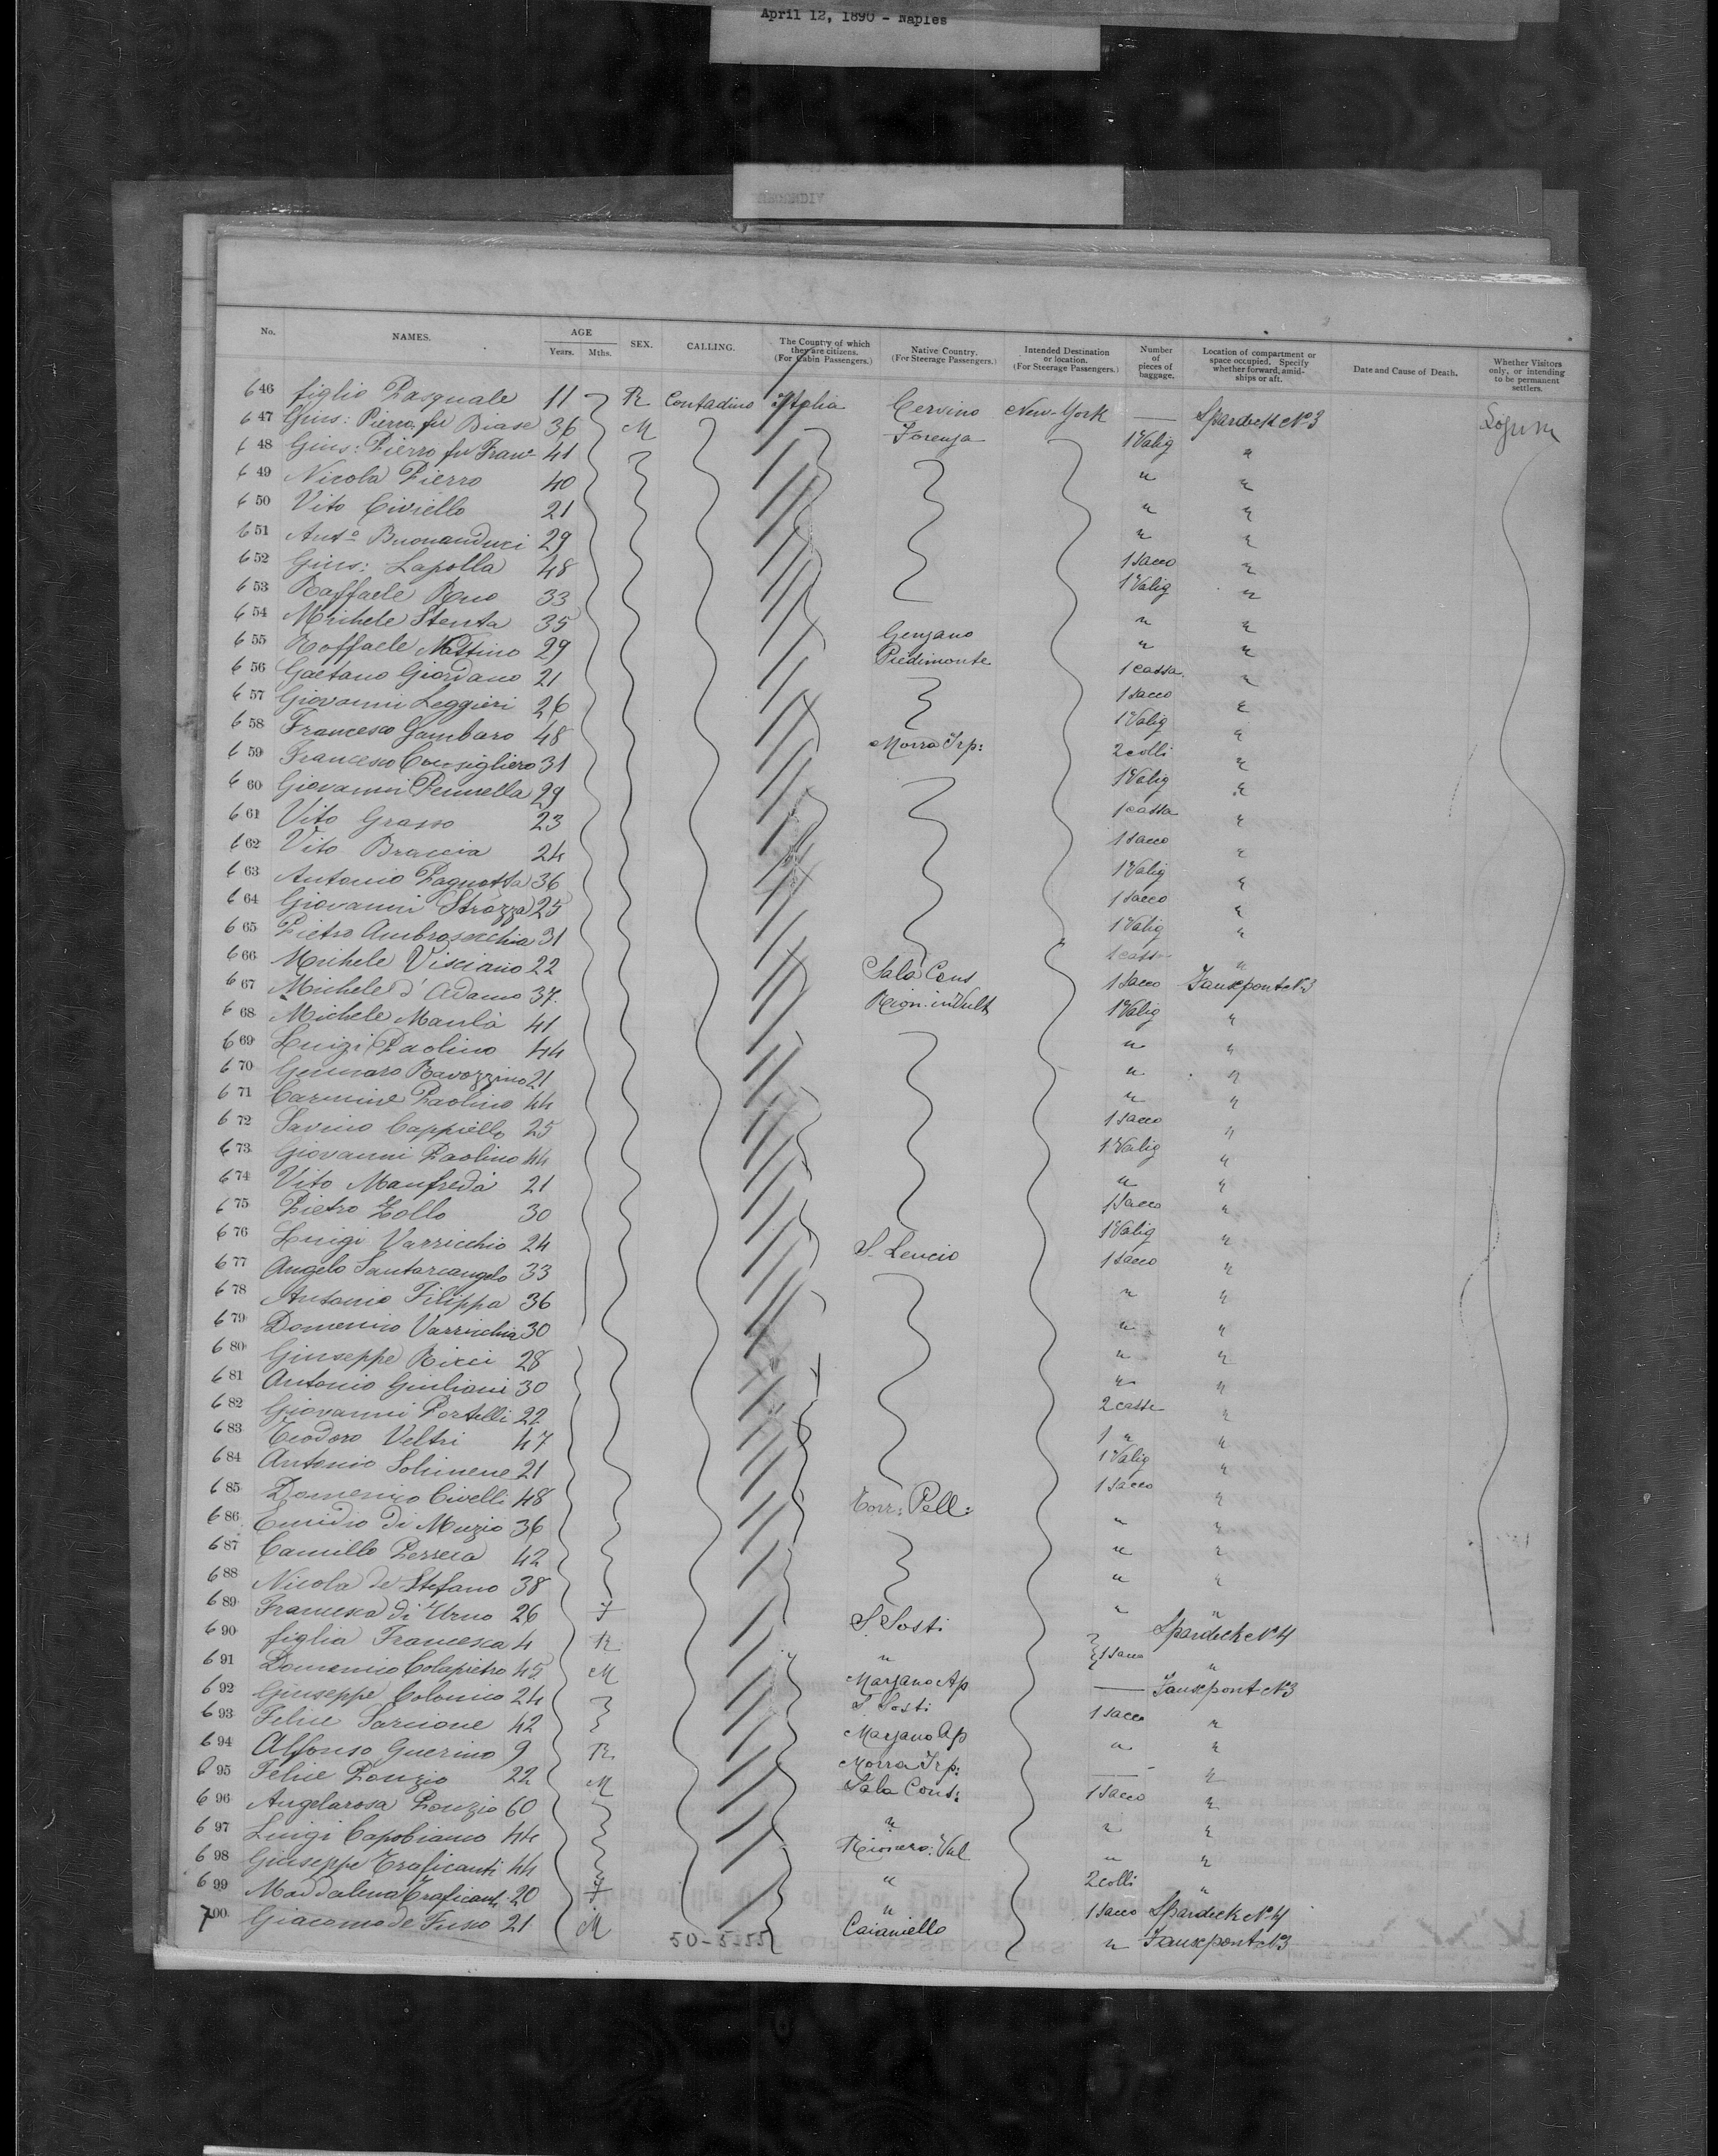 April 12, 1890 - Naples
APPENDIX
No. NAMES. AGE Years. Mths. SEX. CALLING. The Country of which they are citizens. (For Cabin Passengers.) Native Country. (For Steerage Passengers.) Intended Destination or location. (For Steerage Passengers.) Number of pieces of baggage. Location of compartment or space occupied. Specify whether forward, amidships or aft. Date and Cause of Death. Whether Visitors only, or intending to be permanent settlers.
646 figlio Pasquale 11 R Contadino Italia Cervino New-York — Spardeck No 3
647 Gius: Pierro fu Biase 36 M Forenza 1 Valig "
648 Gius: Pierro fu Franc 41 " "
649 Nicola Pierro 40 " "
650 Vito Civiello 21 " "
651 Anto Buonanduci 29 1 Sacco "
652 Gius: Lapolla 48 1 Valig "
653 Raffaele Ruo 33 " "
654 Michele Stenta 35 Genzano " "
655 Raffaele Nattino 29 Piedimonte 1 cassa "
656 Gaetano Giordano 21 1 Sacco "
657 Giovanni Leggieri 26 1 Valig "
658 Francesco Gambaro 48 Morra Irp: 2 colli "
659 Francesco Consigliero 31 1 Valig "
660 Giovanni Pennella 29 1 cassa "
661 Vito Grasso 23 1 Sacco "
662 Vito Braccia 24 1 Valig "
663 Antonio Pagnotta 36 1 Sacco "
664 Giovanni Strazza 25 1 Valig "
665 Pietro Ambrosecchia 31 1 cassa "
666 Michele Visciano 22 Sala Cons 1 Sacco Fausepont No 3
667 Michele d'Adamo 37 Rion. in Vult 1 Valig "
668 Michele Manla 41 " "
669 Luigi Paolino 44 " "
670 Gennaro Ravozzino 21 " "
671 Carmine Paolino 44 1 Sacco "
672 Savino Cappiello 25 1 Valig "
673 Giovanni Paolino 44 " "
674 Vito Manfreda 21 1 Sacco "
675 Pietro Zollo 30 1 Valig "
676 Luigi Varricchio 24 S. Leucio 1 Sacco "
677 Angelo Santarcangelo 33 " "
678 Antonio Filippa 36 " "
679 Domenico Varricchia 30 " "
680 Giuseppe Ricci 28 " "
681 Antonio Giuliani 30 2 casse "
682 Giovanni Portelli 22 1 " "
683 Teodoro Veltri 47 1 Valig "
684 Antonio Solimene 21 1 Sacco "
685 Domenico Civelli 48 Torr: Pell: " "
686 Emidio di Muzio 36 " "
687 Camillo Perreca 42 " "
688 Nicola de Stefano 38 " "
689 Francesca di Urno 26 F S. Sosti Spardeck No 4
690 figlia Francesca 4 R " 1 Sacco "
691 Domenico Colapietro 45 M Marzano Ap — Fausepont No 3
692 Giuseppe Colonico 24 S. Sosti 1 Sacco "
693 Felice Sarcione 42 Marzano Ap " "
694 Alfonso Guerino 9 R Morra Irp: — "
695 Felice Ponzio 22 M Sala Cons: 1 Sacco "
696 Angelarosa Ponzio 60 " " "
697 Luigi Capobianco 44 Rionero: Vul " "
698 Giuseppe Traficanti 44 " 2 colli "
699 Maddalena Traficanti 20 F " 1 Sacco Spardeck No 4
700 Giacomo de Fusco 21 M Caianiello " Fausepont No 3